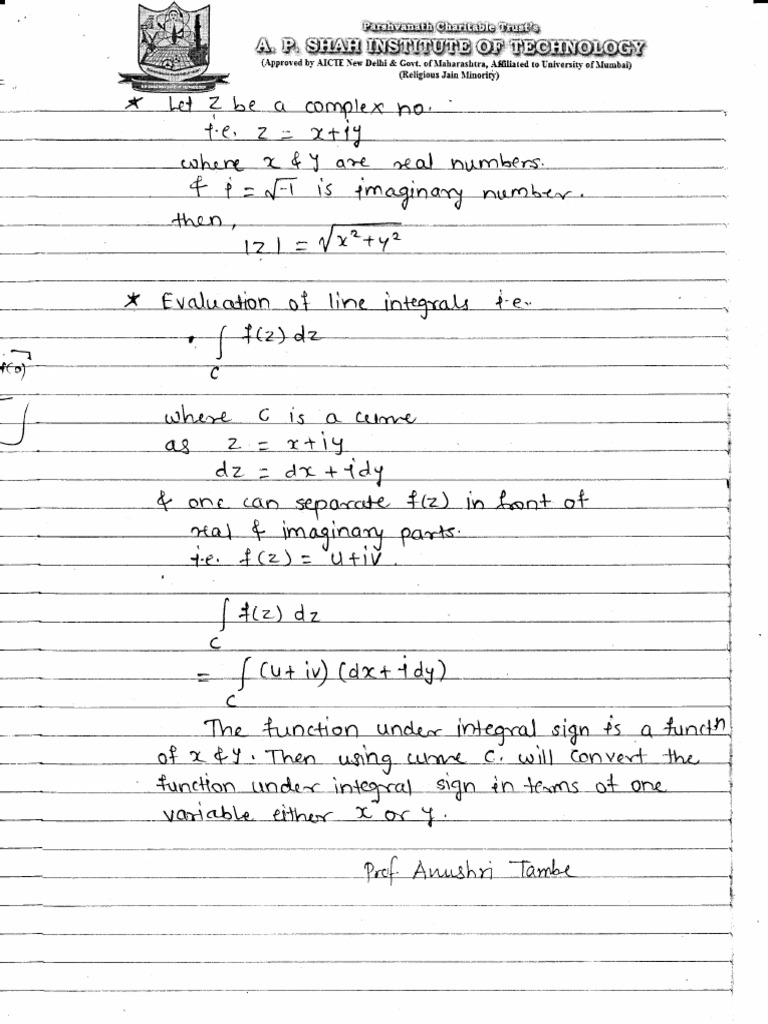 Parshvanath Charitable Trust's
A. P. SHAH INSTITUTE OF TECHNOLOGY
(Approved by AICTE New Delhi & Govt. of Maharashtra, Affiliated to University of Mumbai)
(Religious Jain Minority)
* Let z be a complex no.
i.e. z = x+iy
where x & y are real numbers.
& i = √-1 is imaginary number.
then,
|z| = √x²+y²
* Evaluation of line integrals i.e.
∫ f(z) dz
C
f(0)
where C is a curve
as z = x+iy
dz = dx + idy
& one can separate f(z) in front of
real & imaginary parts.
i.e. f(z) = u+iv.
∫ f(z) dz
C
= ∫ (u+iv) (dx+idy)
C
The function under integral sign is a functn
of x & y. Then using curve C. will convert the
function under integral sign in terms of one
variable either x or y.
Prof. Anushri Tambe